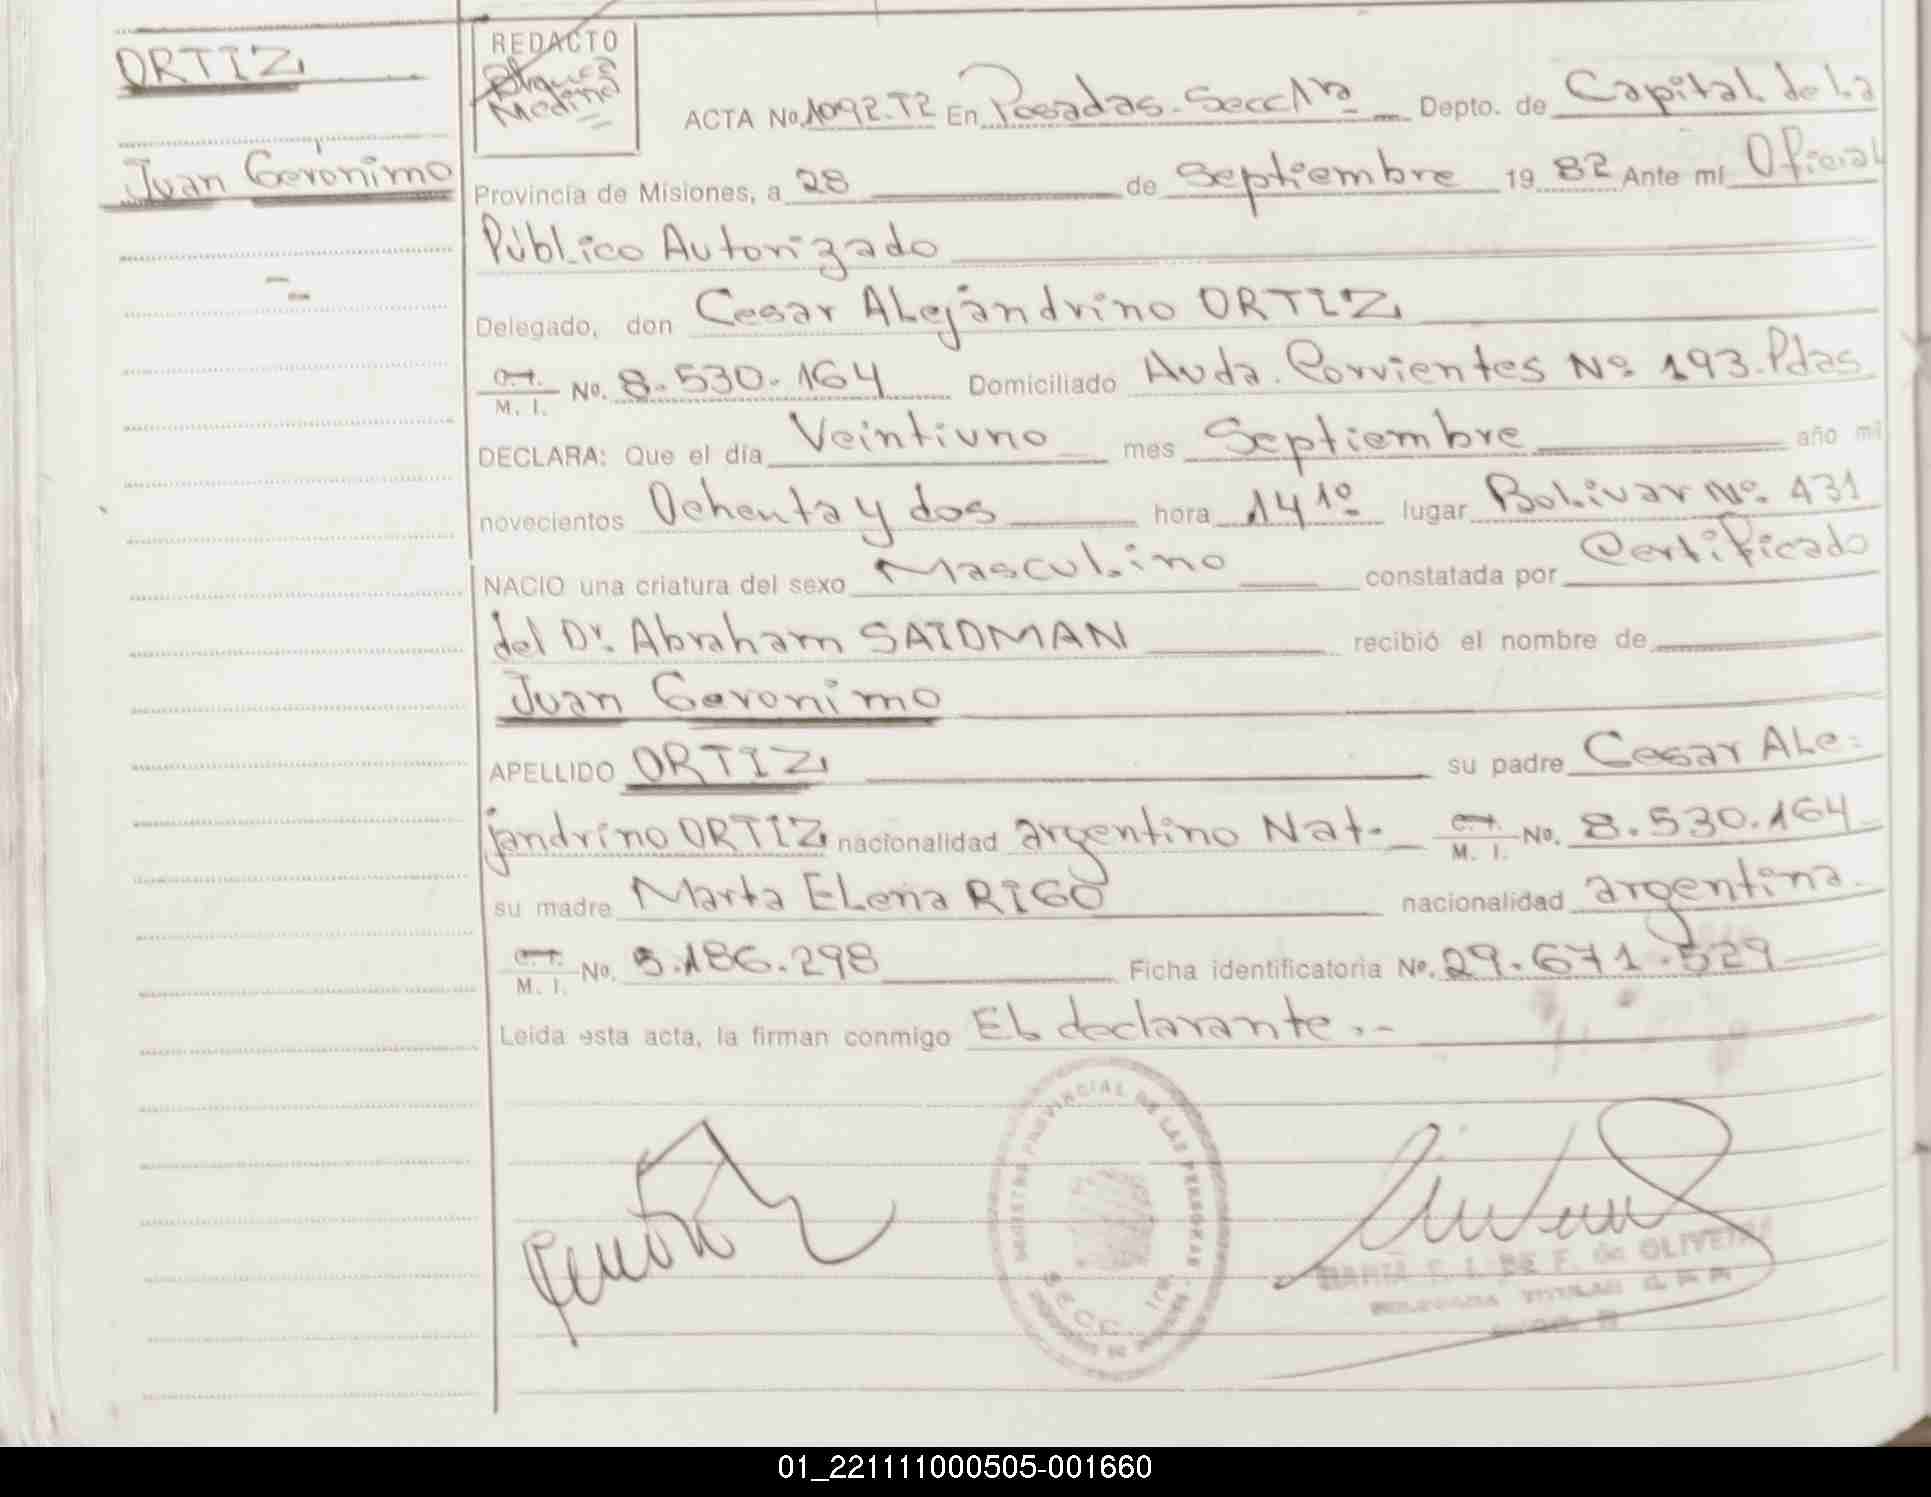 ORTIZ
Juan Gerónimo
REDACTO
Medina
ACTA No. 1092.T2 En Posadas - Secc 1ra Depto. de Capital de la
Provincia de Misiones, a 28 de Septiembre 19 82 Ante mí Oficial
Público Autorizado
Delegado, don Cesar Alejandrino ORTIZ
M. I. No. 8.530.164 Domiciliado Avda. Corrientes No. 193. Pdas
DECLARA: Que el día Veintiuno mes Septiembre año mil
novecientos Ochenta y dos hora 14 10 lugar Bolivar No. 431
NACIO una criatura del sexo Masculino constatada por Certificado
del Dr. Abraham SAIDMAN recibió el nombre de
Juan Geronimo
APELLIDO ORTIZ su padre Cesar Ale=
jandrino ORTIZ nacionalidad argentino Nat. M. I. No. 8.530.164
su madre Marta Elena RIGO nacionalidad argentina
M. I. No. 5.186.298 Ficha identificatoria No. 29.671.529
Leída esta acta, la firman conmigo El declarante.-
REGISTRO PROVINCIAL DE LAS PERSONAS
SECC. 1ra
MARIA E. I. DE F. de OLIVEIRA
TITULAR
01_221111000505-001660